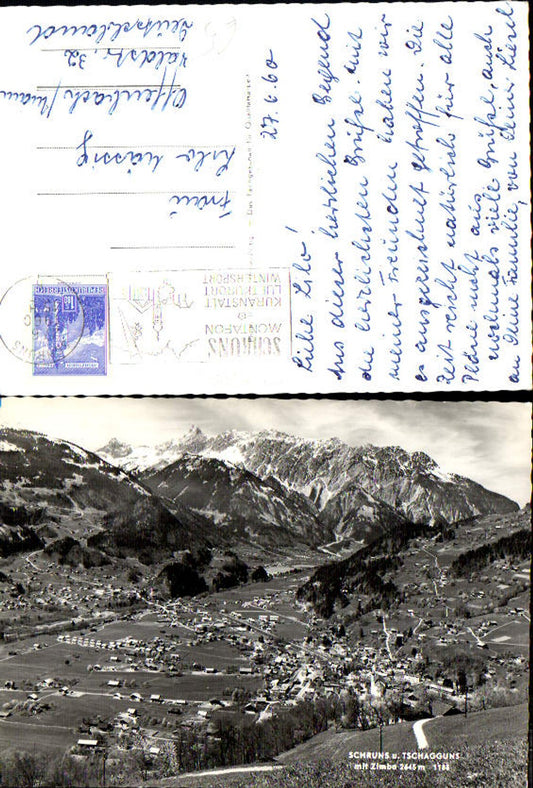 27.6.60
Liebe Lilo!
Aus dieser herrlichen Gegend
die herzlichsten Grüße. Mit
meiner Freundin haben wir
es ausgezeichnet getroffen. Die
Zeit reicht natürlich für alle
Pläne nicht aus.
nochmals viele Grüße, auch
an Deine Familie, von Deiner Liesel
Frau
Lilo
Offenbach/Main
Waldstr. 32
Deutschland
SCHRUNS
MONTAFON
KURANSTALT
LUFTKURORT
WINTERSPORT
REPUBLIK ÖSTERREICH
SCHRUNS u. TSCHAGGUNS
mit Zimba 2645 m 1188